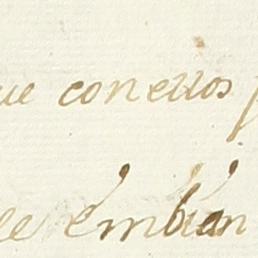 ue con ellos
se embian